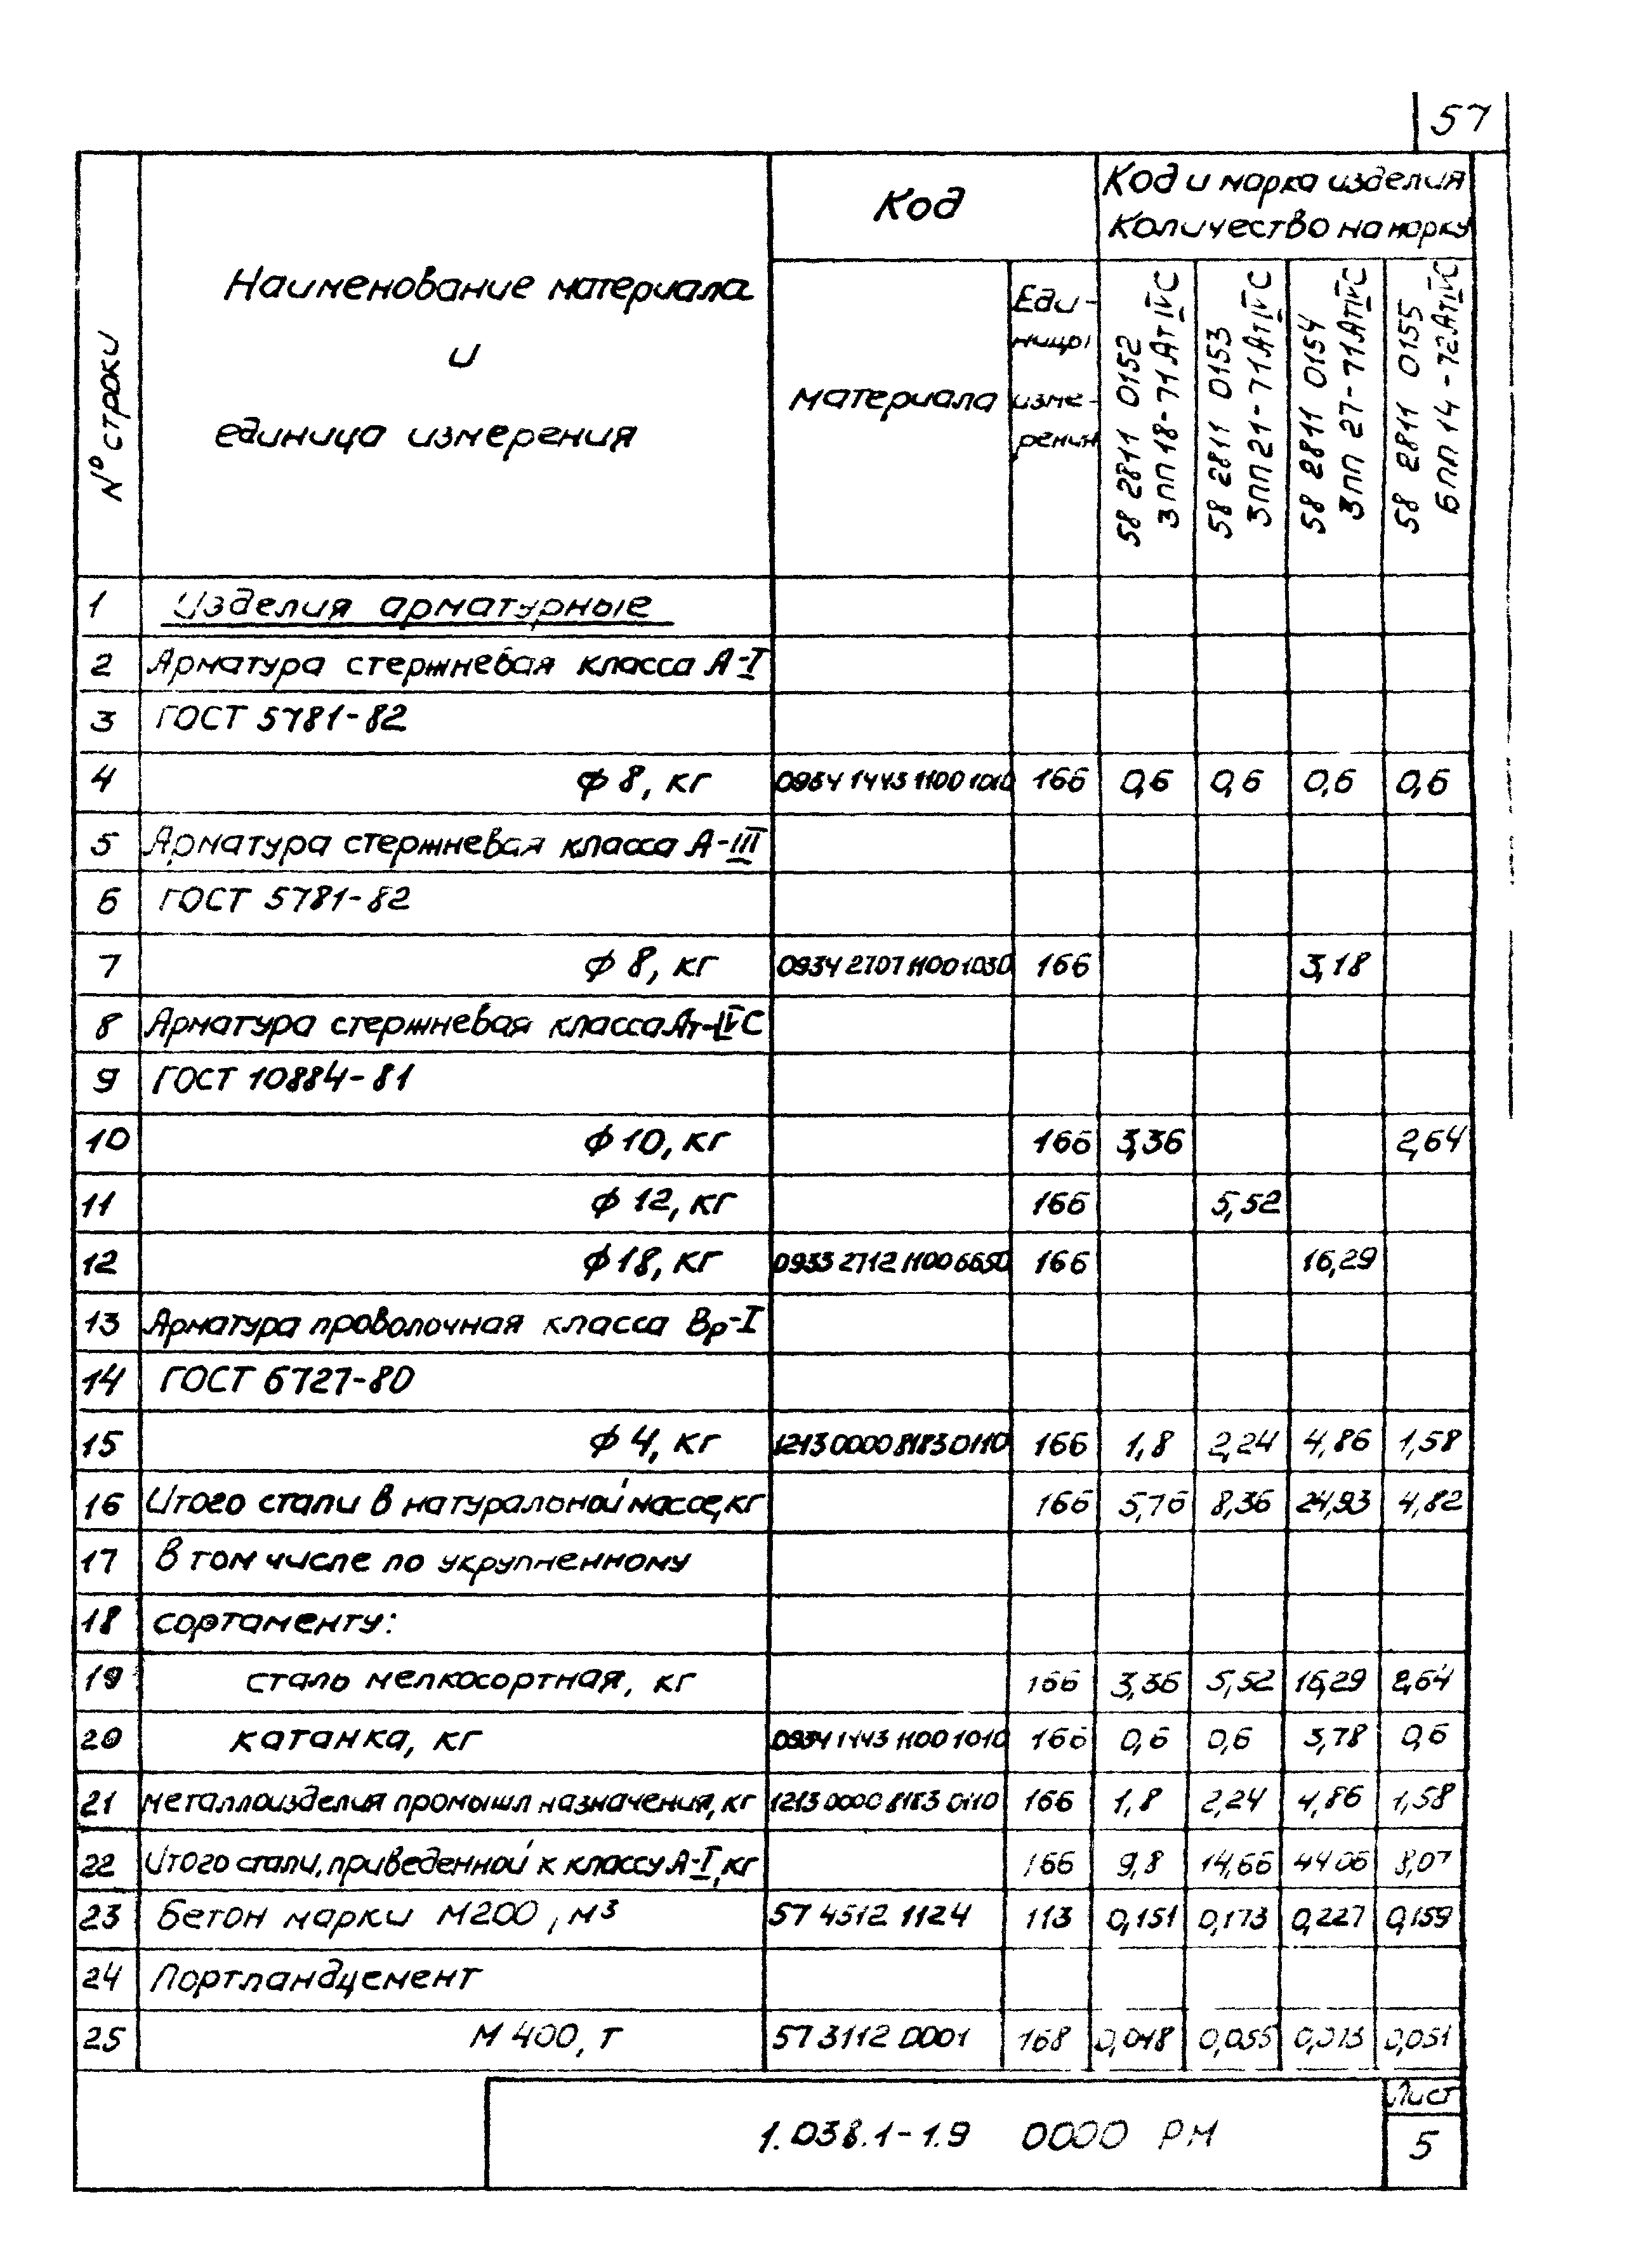 57
№ строки
Наименование материала
и
единица измерения
Код
Код и марка изделия
Количество на марку
материала
Еди-
ницы
изме-
рения
58 2811 0152
3пп 18-71АтIVС
58 2811 0153
3пп 21-71АтIVС
58 2811 0154
3пп 27-71АтIVС
58 2811 0155
6пп 14-72АтIVС
1 Изделия арматурные
2 Арматура стержневая класса А-I
3 ГОСТ 5781-82
4 ф 8, кг 0934 1443 1100 1010 166 0,6 0,6 0,6 0,6
5 Арматура стержневая класса А-III
6 ГОСТ 5781-82
7 ф 8, кг 0934 2707 1100 1030 166 3,18
8 Арматура стержневая класса Ат-IVС
9 ГОСТ 10884-81
10 ф 10, кг 166 3,36 2,64
11 ф 12, кг 166 5,52
12 ф 18, кг 0933 2712 1100 6650 166 16,29
13 Арматура проволочная класса Вр-I
14 ГОСТ 6727-80
15 ф 4, кг 1213 0000 8183 0110 166 1,8 2,24 4,86 1,58
16 Итого стали в натуральной массе, кг 166 5,76 8,36 24,93 4,82
17 в том числе по укрупненному
18 сортаменту:
19 сталь мелкосортная, кг 166 3,36 5,52 16,29 2,64
20 катанка, кг 0934 1443 1100 1010 166 0,6 0,6 3,78 0,6
21 металлоизделия промышл назначения, кг 1213 0000 8183 0110 166 1,8 2,24 4,86 1,58
22 Итого стали, приведенной к классу А-I, кг 166 9,8 14,66 44 06 8,07
23 Бетон марки М200, м³ 57 4512 1124 113 0,151 0,173 0,227 0,159
24 Портландцемент
25 М 400, т 57 3112 0001 168 0,048 0,055 0,073 0,051
1.038.1-1.9 0000 РМ
Лист
5